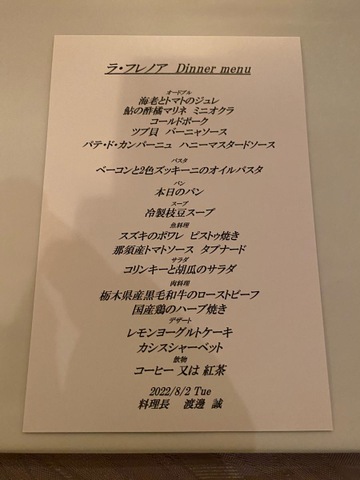 ラ・フレノア Dinner menu
オードブル
海老とトマトのジュレ
鮎の酢橘マリネ ミニオクラ
コールドポーク
ツブ貝 バーニャソース
パテ・ド・カンパーニュ ハニーマスタードソース
パスタ
ベーコンと2色ズッキーニのオイルパスタ
パン
本日のパン
スープ
冷製枝豆スープ
魚料理
スズキのポワレ ピストゥ焼き
那須産トマトソース タプナード
サラダ
コリンキーと胡瓜のサラダ
肉料理
栃木県産黒毛和牛のローストビーフ
国産鶏のハーブ焼き
デザート
レモンヨーグルトケーキ
カシスシャーベット
飲物
コーヒー 又は 紅茶
2022/8/2 Tue
料理長 渡邊 誠